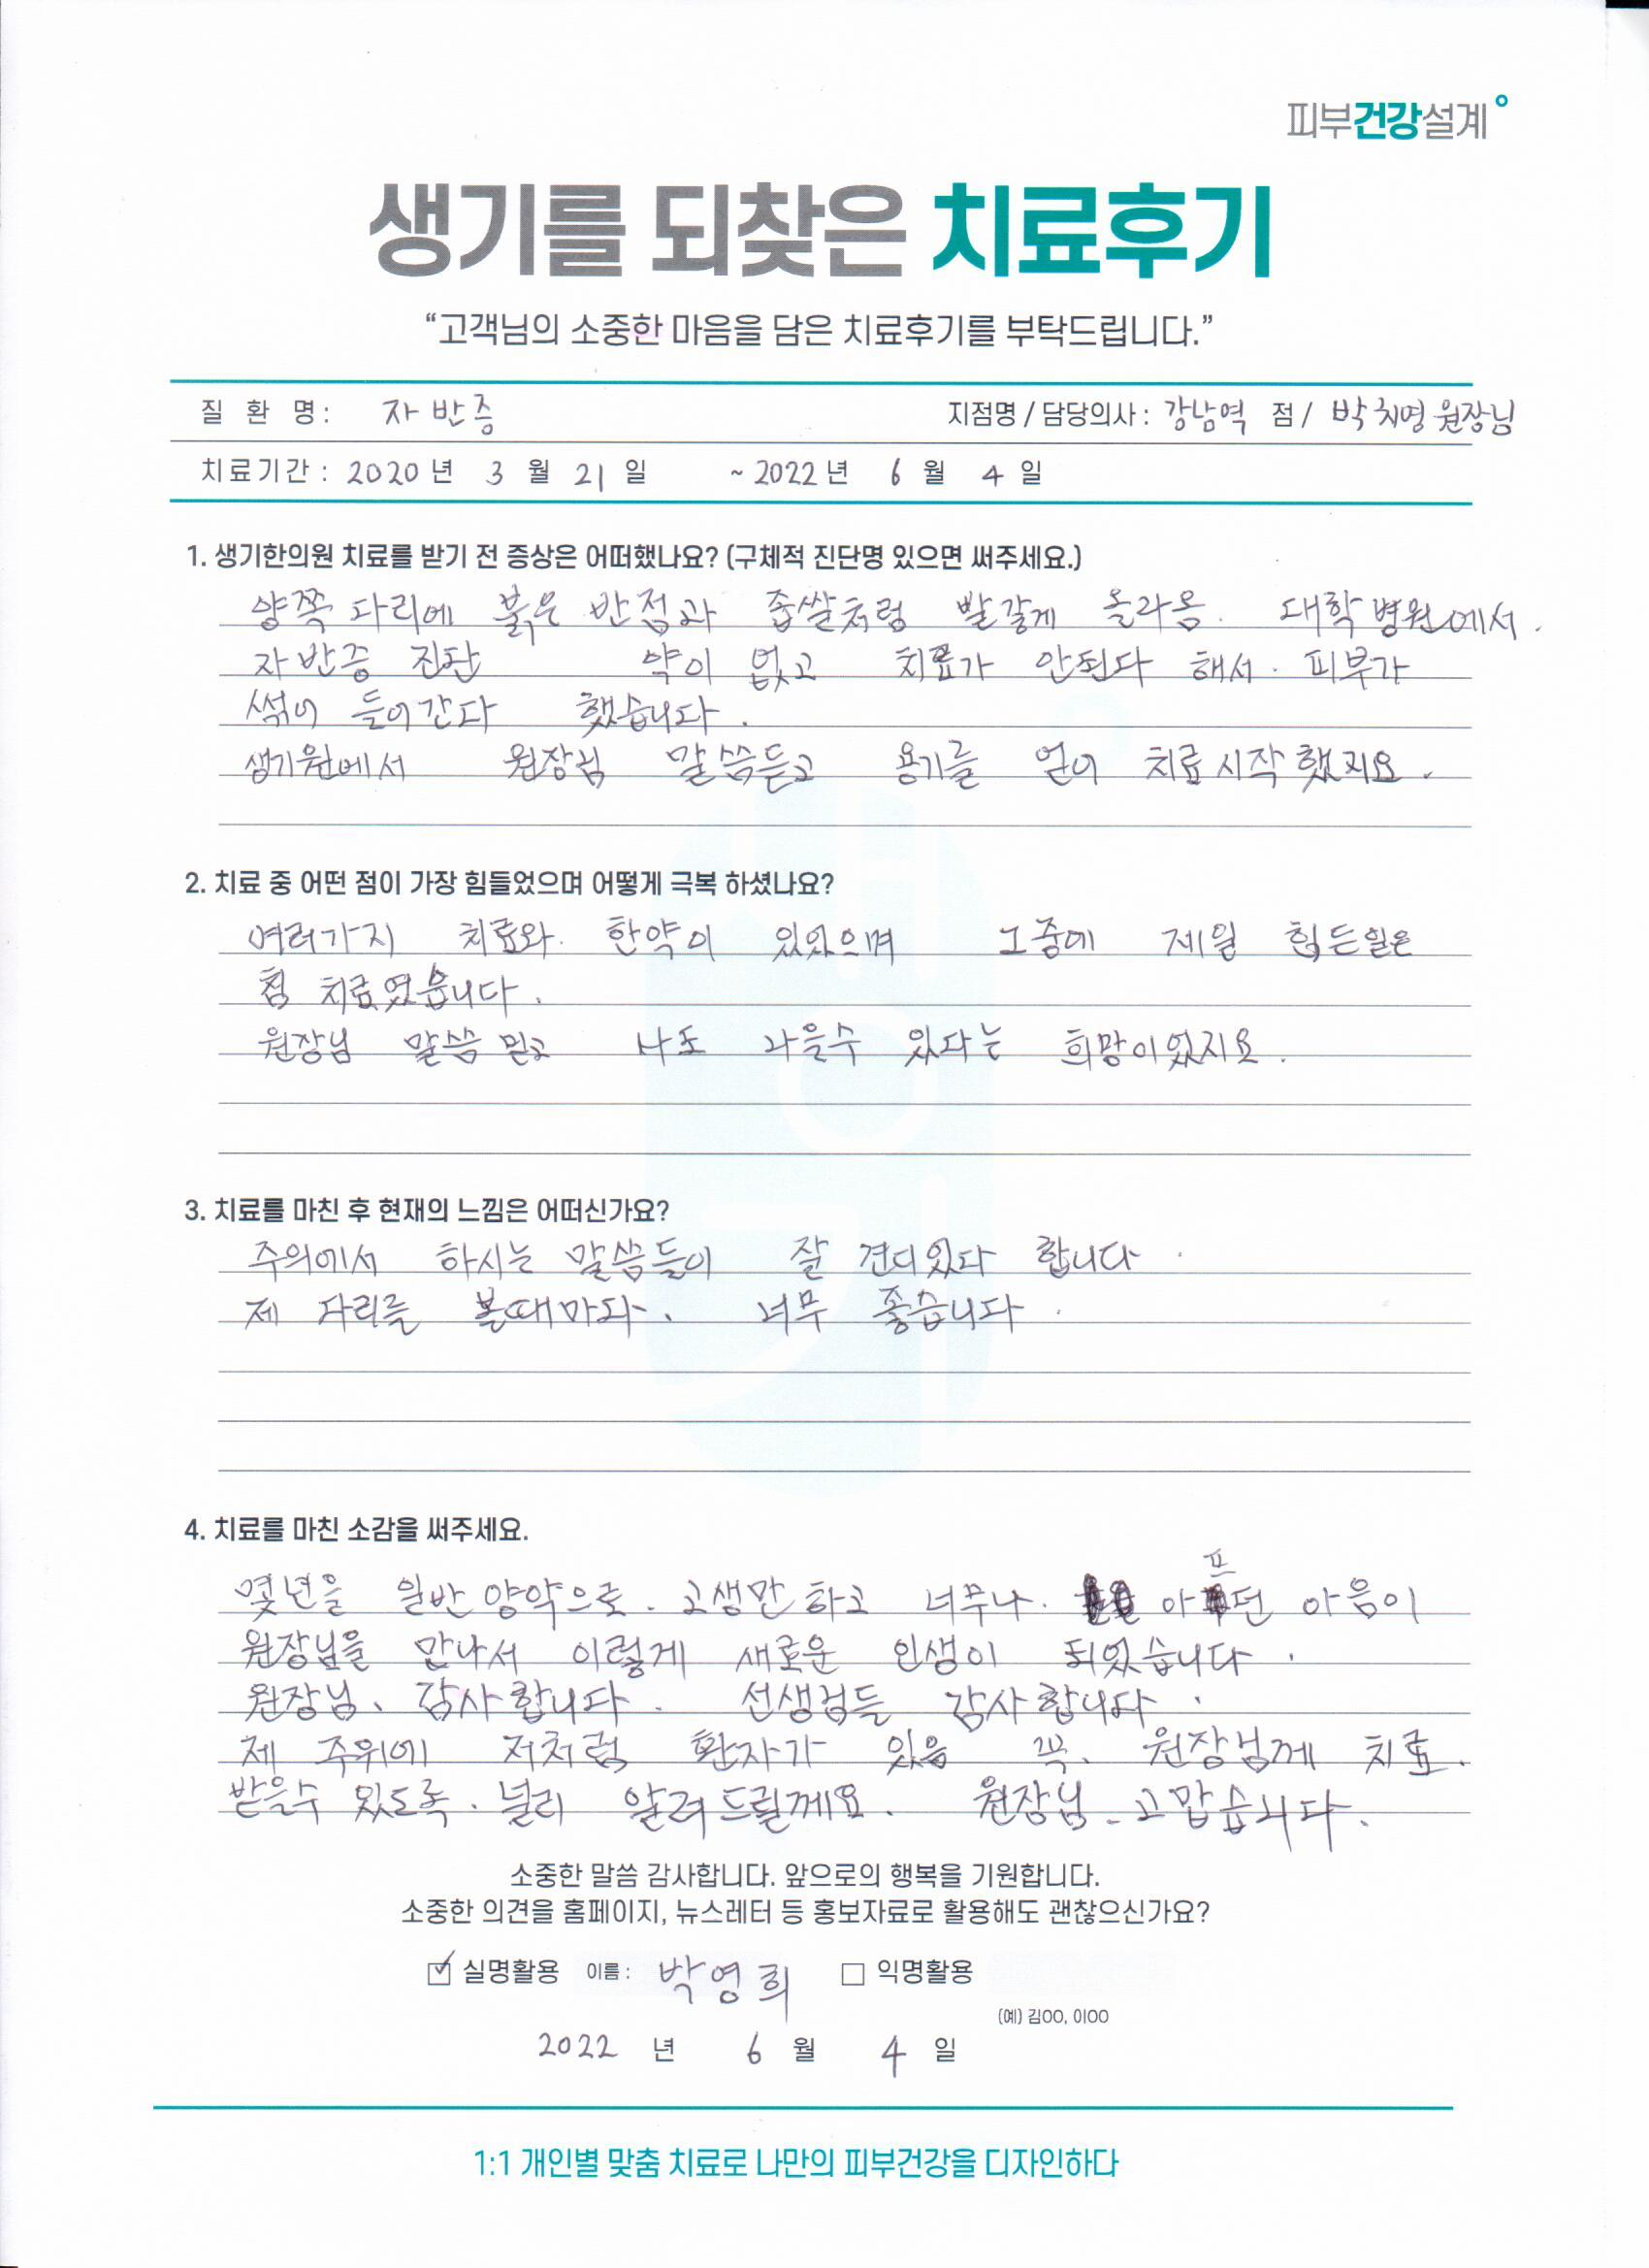 피부건강설계
생기를 되찾은 치료후기
“고객님의 소중한 마음을 담은 치료후기를 부탁드립니다.”
질 환 명: 자반증 지점명 / 담당의사: 강남역 점 / 박치영 원장님
치료기간: 2020 년 3 월 21 일 ~ 2022 년 6 월 4 일
1. 생기한의원 치료를 받기 전 증상은 어떠했나요? (구체적 진단명 있으면 써주세요.)
양쪽 다리에 붉은 반점과 좁쌀처럼 빨갛게 올라옴. 대학병원에서.
자반증 진단 약이 없고 치료가 안된다 해서. 피부가
썪어 들어간다 했습니다.
생기원에서 원장님 말씀듣고 용기를 얻어 치료시작했지요.
2. 치료 중 어떤 점이 가장 힘들었으며 어떻게 극복 하셨나요?
여러가지 치료와. 한약이 있었으며 그중에 제일 힘든일은
침 치료였습니다.
원장님 말씀 믿고 나도 나을수 있다는 희망이었지요.
3. 치료를 마친 후 현재의 느낌은 어떠신가요?
주의에서 하시는 말씀들이 잘 견디었다 합니다.
제 다리를 볼때마다. 너무 좋습니다.
4. 치료를 마친 소감을 써주세요.
몇년을 일반 양약으로. 고생만 하고 너무나. 아프던 아음이
원장님을 만나서 이렇게 새로운 인생이 되었습니다.
원장님. 감사합니다. 선생님들 감사합니다.
제 주위에 저처럼 환자가 있음 꼭. 원장님께 치료.
받을수 있도록. 널리 알려드릴께요. 원장님. 고맙습니다.
소중한 말씀 감사합니다. 앞으로의 행복을 기원합니다.
소중한 의견을 홈페이지, 뉴스레터 등 홍보자료로 활용해도 괜찮으신가요?
실명활용 이름: 박영희 익명활용
(예) 김OO, 이OO
2022 년 6 월 4 일
1:1 개인별 맞춤 치료로 나만의 피부건강을 디자인하다